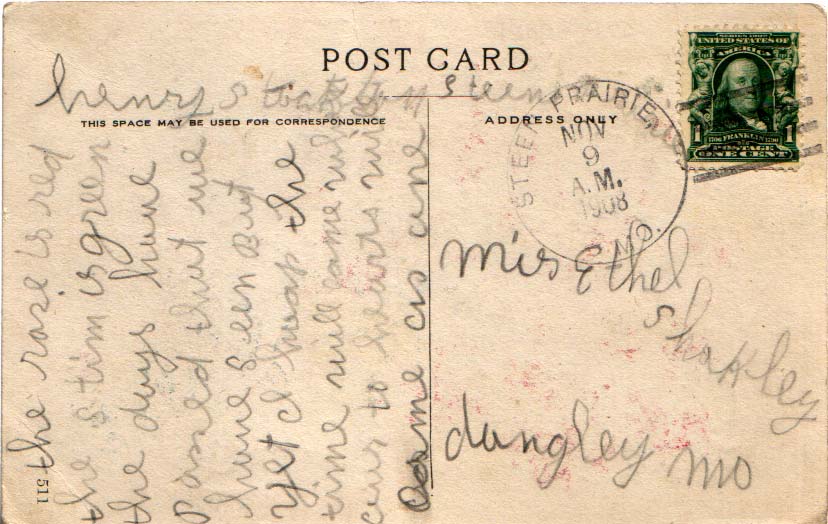 POST CARD
henry
THIS SPACE MAY BE USED FOR CORRESPONDENCE
ADDRESS ONLY
the rose is red
the stim is green
the days have
Passed that we
have Seen But
yet I hoap the
time will come
our to hearts
Come as one
511
SERIES 1902
UNITED STATES OF
AMERICA
1 FRANKLIN 1
POSTAGE
ONE CENT
STEEN PRAIRIE
NOV
9
A.M.
1908
MO.
Mis Ethel
Shokley
dangley mo